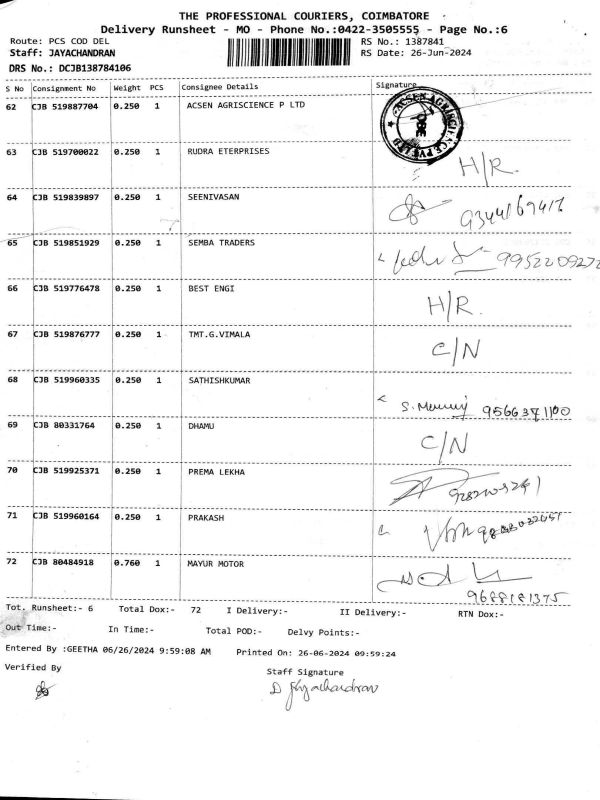 THE PROFESSIONAL COURIERS, COIMBATORE
Delivery Runsheet - MO - Phone No.:0422-3505555 - Page No.:6
Route: PCS COD DEL RS No.: 1387841
Staff: JAYACHANDRAN RS Date: 26-Jun-2024
DRS No.: DCJB138784106
S No Consignment No Weight PCS Consignee Details Signature
62 CJB 519887704 0.250 1 ACSEN AGRISCIENCE P LTD
63 CJB 519700022 0.250 1 RUDRA ETERPRISES H/R.
64 CJB 519839897 0.250 1 SEENIVASAN
65 CJB 519851929 0.250 1 SEMBA TRADERS
66 CJB 519776478 0.250 1 BEST ENGI H/R.
67 CJB 519876777 0.250 1 TMT.G.VIMALA C/N
68 CJB 519960335 0.250 1 SATHISHKUMAR
69 CJB 80331764 0.250 1 DHAMU C/N
70 CJB 519925371 0.250 1 PREMA LEKHA
71 CJB 519960164 0.250 1 PRAKASH
72 CJB 80484918 0.760 1 MAYUR MOTOR
9688181375
Tot. Runsheet:- 6 Total Dox:- 72 I Delivery:- II Delivery:- RTN Dox:-
Out Time:- In Time:- Total POD:- Delvy Points:-
Entered By :GEETHA 06/26/2024 9:59:08 AM Printed On: 26-06-2024 09:59:24
Verified By Staff Signature